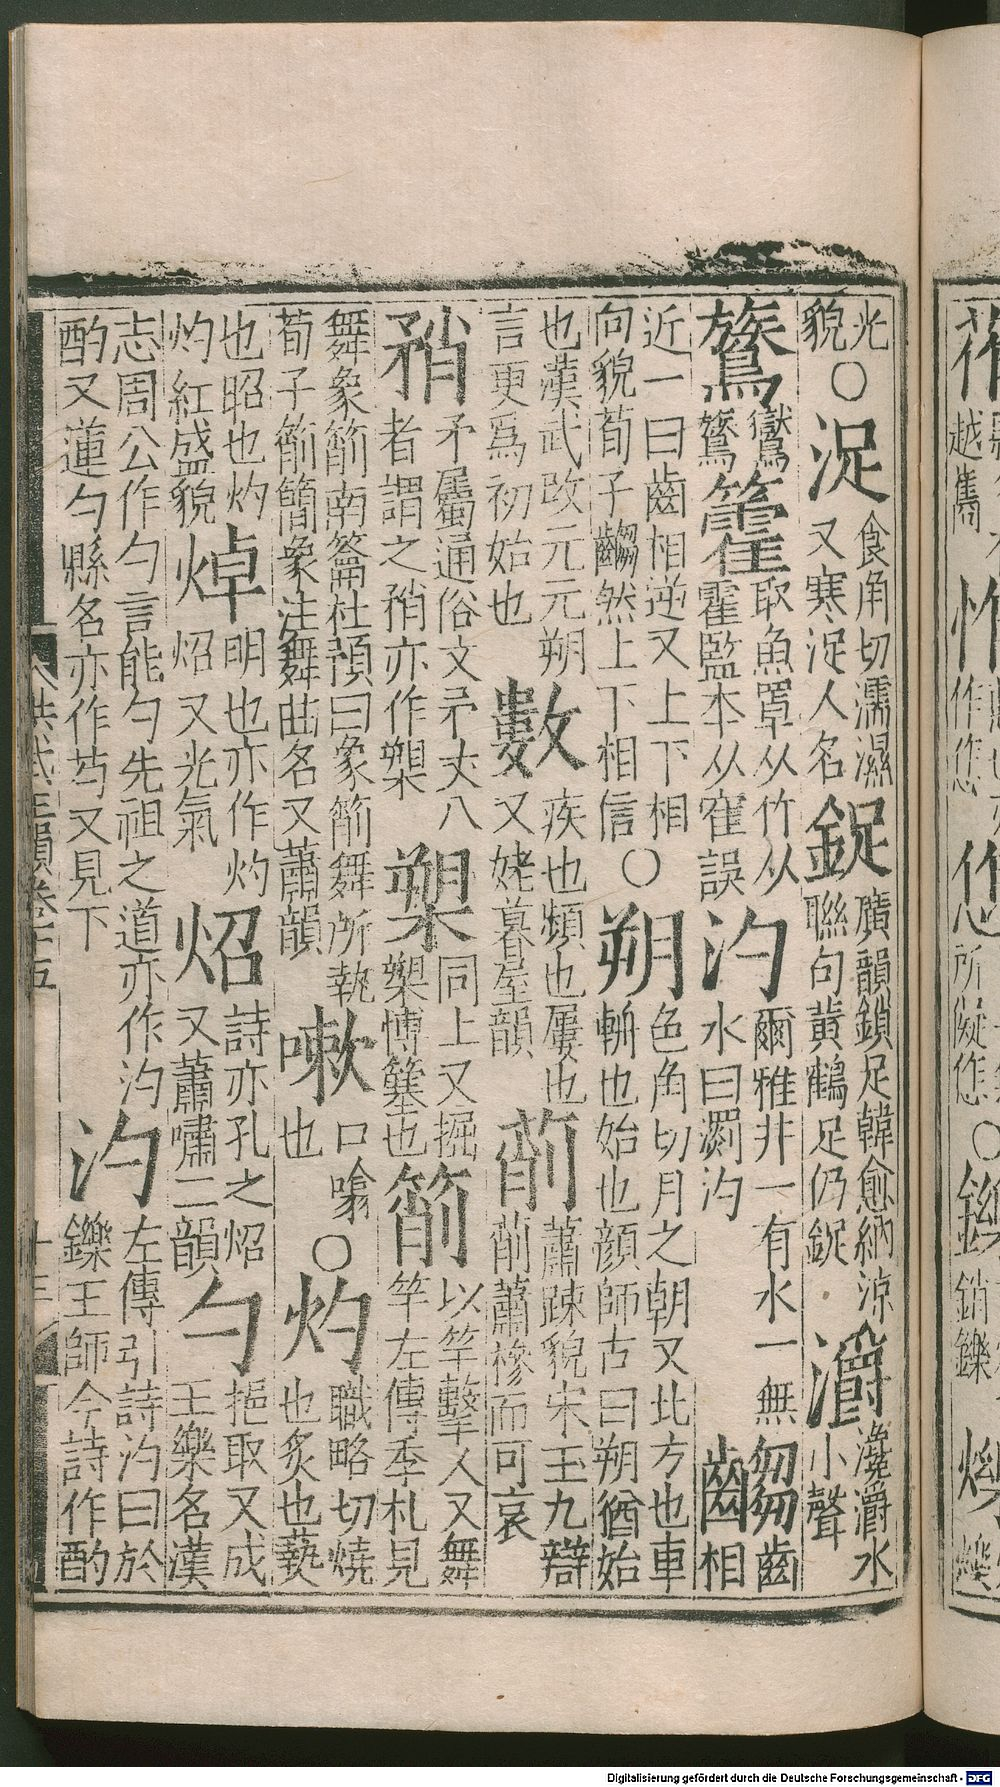 光貌○浞食角切濡濕又寒浞人名鋜廣韻鎖足韓愈納涼聯句黃鶴足仍鋜灂瀺灂水小聲
鷟鸑鷟籗取魚罩从竹从霍監本从寉誤汋爾雅井一有水一無水曰瀱汋齺齒相
近一曰齒相逆又上下相向貌荀子齺然上下相信○朔色角切月之朝又北方也車斬也始也顔師古曰朔猶始
也漢武改元元朔言更爲初始也數疾也頻也屢也又姥暮屋韻萷蕭踈貌宋玉九辯萷蕭槮而可哀
矟矛屬通俗文矛丈八者謂之矟亦作槊槊同上又握槊博簺也箾以竿擊人又舞竿左傳季札見
舞象箾南籥杜預曰象箾舞所執荀子箾簡象注舞曲名又蕭韻嗽口噏也○灼職略切燒也炙也爇
也昭也灼灼紅盛貌焯明也亦作灼炤又光氣炤詩亦孔之炤又蕭嘯二韻勺挹取又成王樂名漢
志周公作勺言能勺先祖之道亦作汋酌又蓮勺縣名亦作芍又見下汋左傳引詩汋曰於鑠王師今詩作酌
洪武正韻卷十五
十三
越
作
所
○鑠
銷鑠
Digitalisierung gefördert durch die Deutsche Forschungsgemeinschaft - DFG